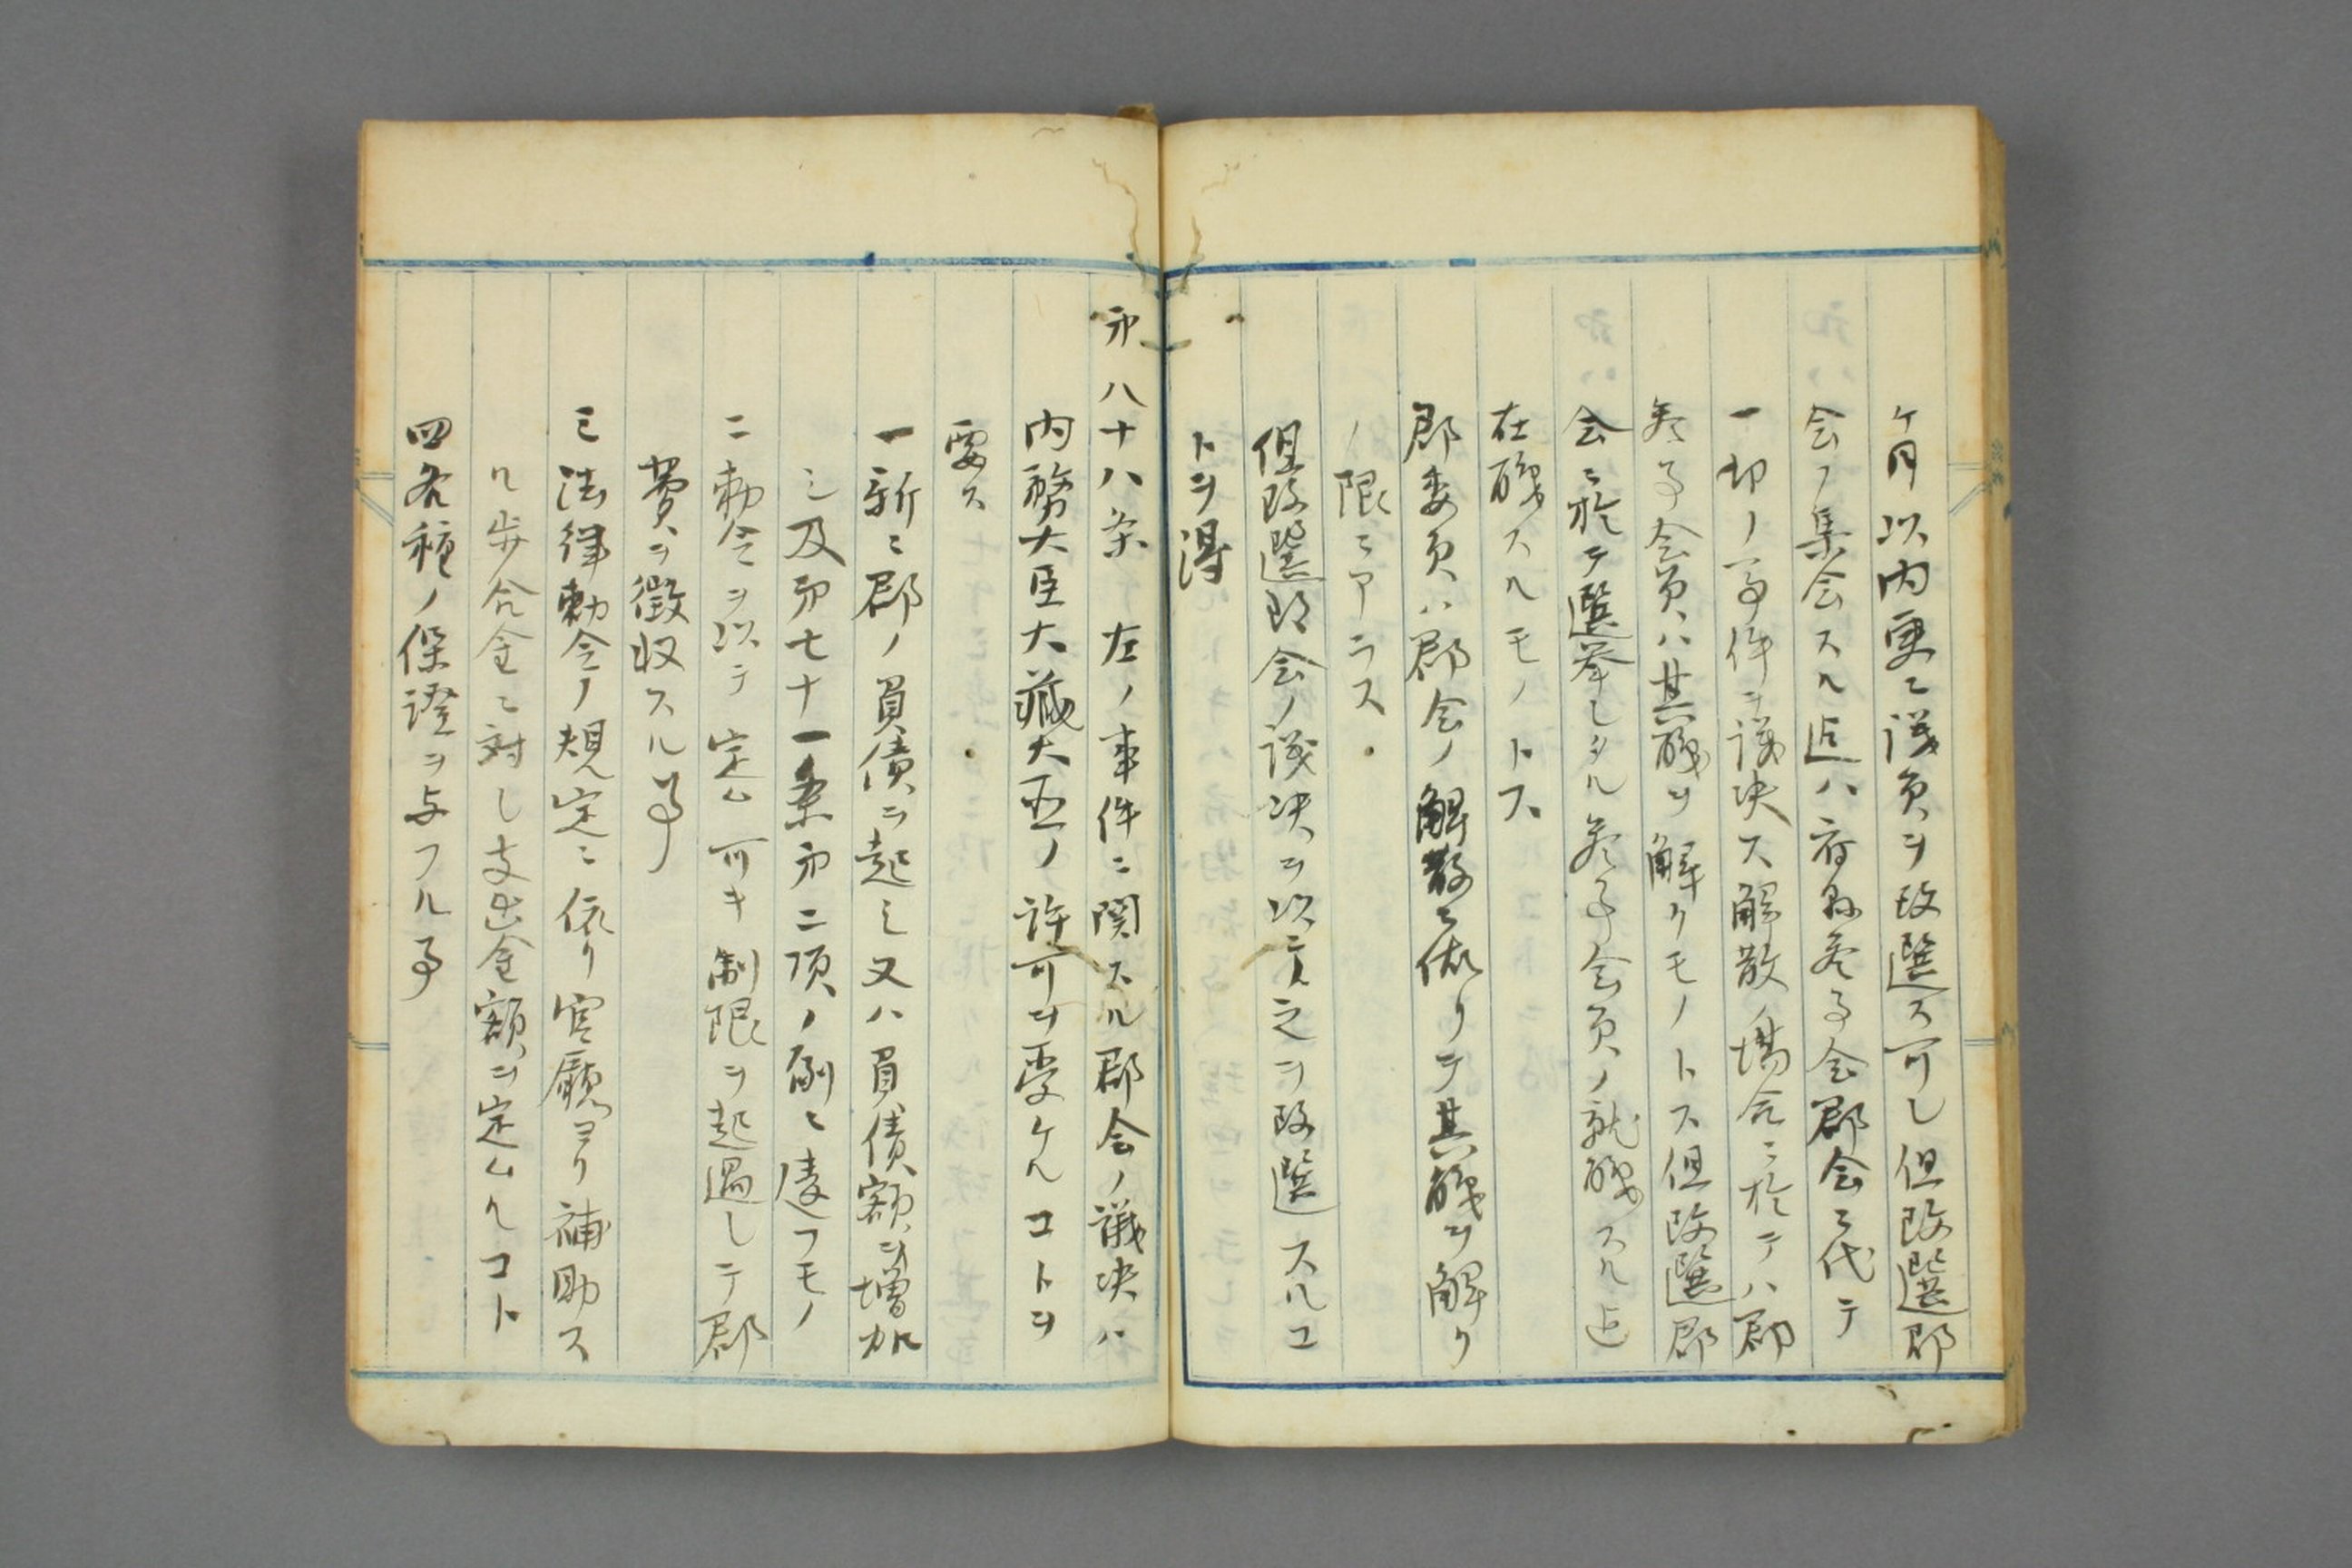 ケ月以内更ニ議員ヲ改選ス可し但改選郡
会ノ集会スル迠ハ府県参事会郡会ニ代テ
一切ノ事件ヲ議決ス解散ノ場合ニ於テハ郡
参事会員ハ其職ヲ解クモノトス但改選郡
会ニ於テ選挙シタル参事会員ノ就職スル迠
在職スルモノトス
郡委員ハ郡会ノ解散ニ依リテ其職ヲ解ク
ノ限ニアラス
但改選郡会ノ議決ヲ以テ之ヲ改選スルコ
トヲ得
第八十八条 左ノ事件ニ関スル郡会ノ議決ハ
内務大臣大藏大臣ノ許可ヲ受ケルコトヲ
要ス
一新ニ郡ノ員債ヲ起シ又ハ員債額ヲ増加
シ及第七十一条第二項ノ例ニ違フモノ
二勅令ヲ以テ定ム可キ制限ヲ起過シテ郡
費ヲ徴収スル事
三法律勅令ノ規定ニ依リ官廳ヨリ補助ス
ル歩合金ニ対し支出金額ヲ定ムルコト
四各種ノ保證ヲ与フル事